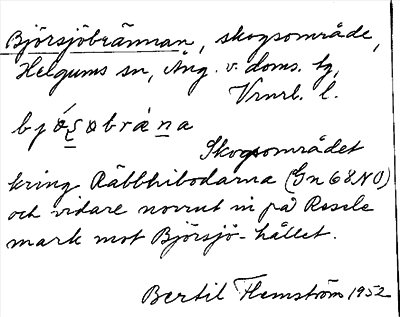 Björsjöbrännan, skogsområde,
Helgums sn, Ång. v. doms. tg,
Vrnrb. l.
Skogsområdet
kring Räbbhibodarna (Gn 68 NO)
och vidare norrut in på Resele
mark mot Björsjö-hållet.
Bertil Flemström 1952